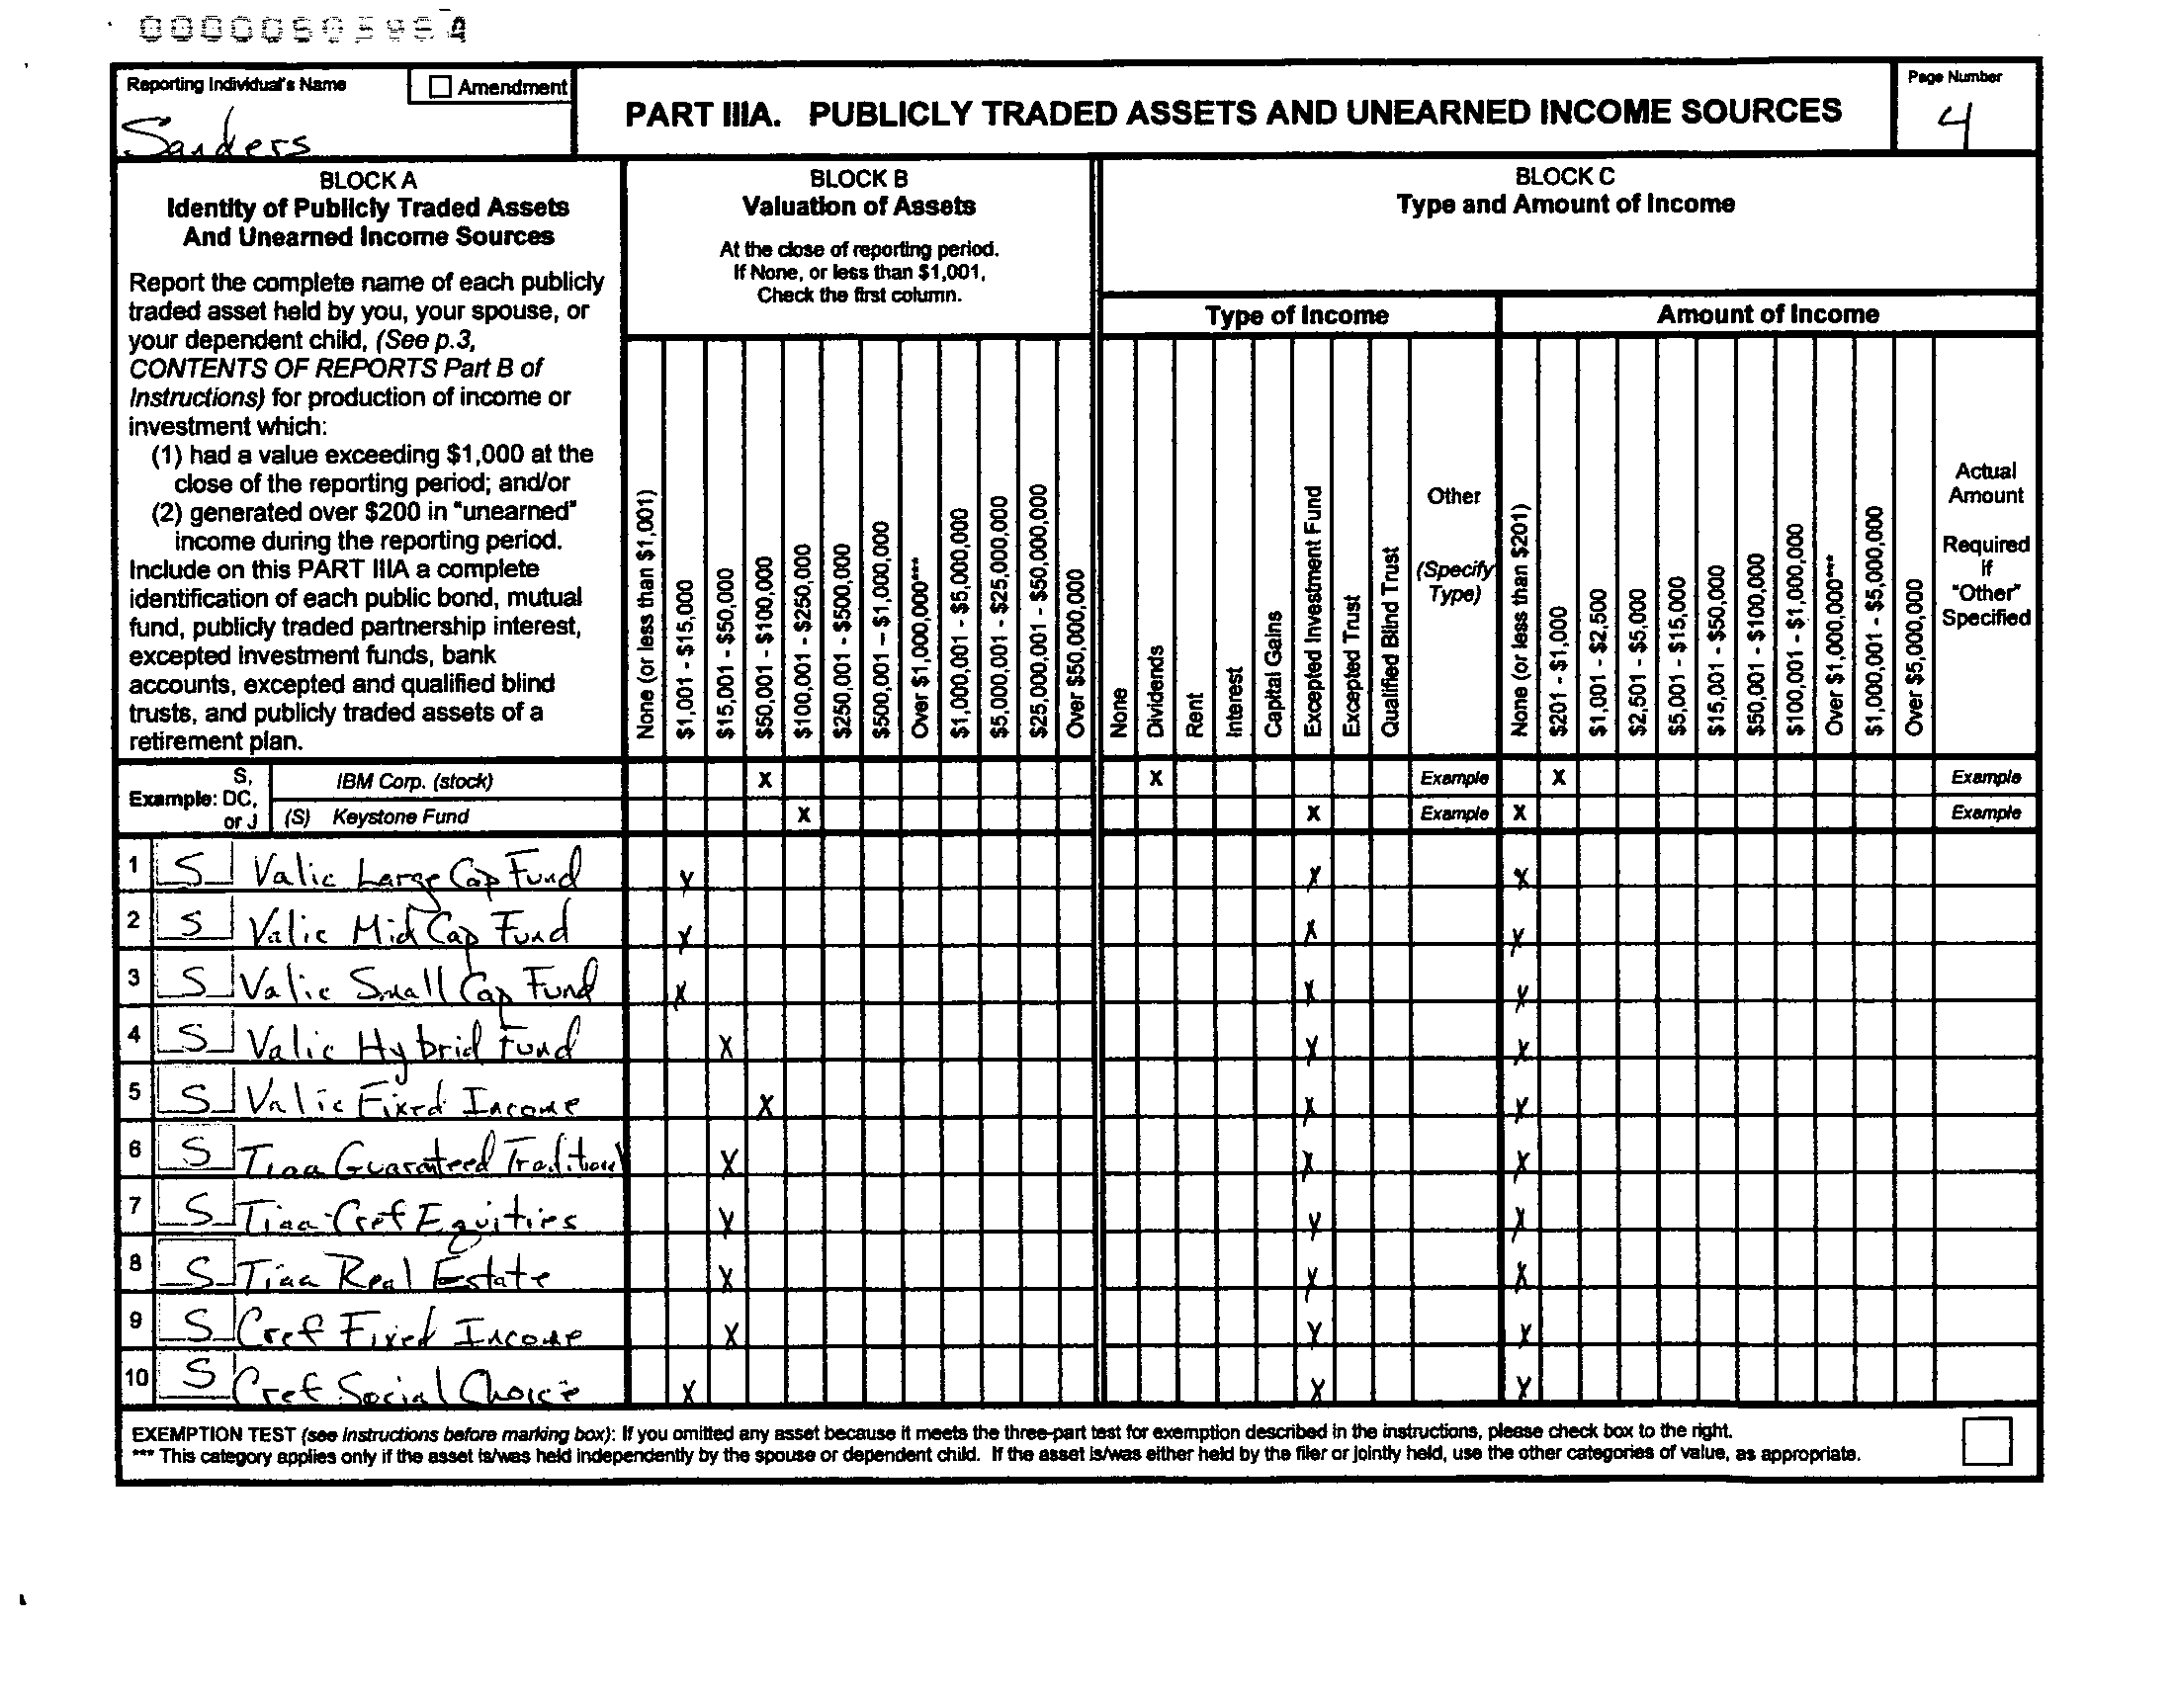 Reporting Individual's Name
Amendment
Sanders
PART IIIA. PUBLICLY TRADED ASSETS AND UNEARNED INCOME SOURCES
Page Number
4
BLOCK A
Identity of Publicly Traded Assets
And Unearned Income Sources
Report the complete name of each publicly
traded asset held by you, your spouse, or
your dependent child, (See p.3,
CONTENTS OF REPORTS Part B of
Instructions) for production of income or
investment which:
(1) had a value exceeding $1,000 at the
close of the reporting period; and/or
(2) generated over $200 in "unearned"
income during the reporting period.
Include on this PART IIIA a complete
identification of each public bond, mutual
fund, publicly traded partnership interest,
excepted investment funds, bank
accounts, excepted and qualified blind
trusts, and publicly traded assets of a
retirement plan.
BLOCK B
Valuation of Assets
At the close of reporting period.
If None, or less than $1,001,
Check the first column.
None (or less than $1,001)
$1,001 - $15,000
$15,001 - $50,000
$50,001 - $100,000
$100,001 - $250,000
$250,001 - $500,000
$500,001 – $1,000,000
Over $1,000,000***
$1,000,001 - $5,000,000
$5,000,001 - $25,000,000
$25,000,001 - $50,000,000
Over $50,000,000
BLOCK C
Type and Amount of Income
Type of Income
None
Dividends
Rent
Interest
Capital Gains
Excepted Investment Fund
Excepted Trust
Qualified Blind Trust
Other
(Specify
Type)
Amount of Income
None (or less than $201)
$201 - $1,000
$1,001 - $2,500
$2,501 - $5,000
$5,001 - $15,000
$15,001 - $50,000
$50,001 - $100,000
$100,001 - $1,000,000
Over $1,000,000***
$1,000,001 - $5,000,000
Over $5,000,000
Actual
Amount
Required
If
"Other"
Specified
Example: S, DC, or J
IBM Corp. (stock) X X Example X Example
(S) Keystone Fund X X Example X Example
1 S Valic Large Cap Fund X X X
2 S Valic Mid Cap Fund X X X
3 S Valic Small Cap Fund X X X
4 S Valic Hybrid Fund X X X
5 S Valic Fixed Income X X X
6 S Tiaa Guaranteed Traditional X X X
7 S Tiaa-Cref Equities X X X
8 S Tiaa Real Estate X X X
9 S Cref Fixed Income X X X
10 S Cref Social Choice X X X
EXEMPTION TEST (see instructions before marking box): If you omitted any asset because it meets the three-part test for exemption described in the instructions, please check box to the right.
*** This category applies only if the asset is/was held independently by the spouse or dependent child. If the asset is/was either held by the filer or jointly held, use the other categories of value, as appropriate.